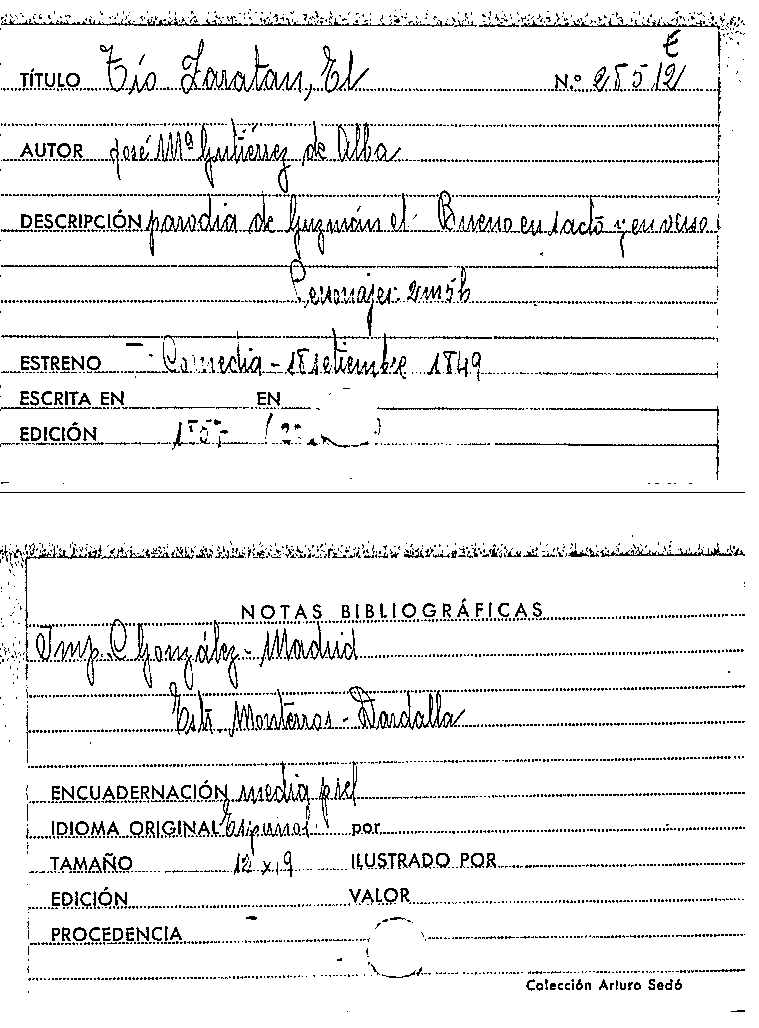 E
TÍTULO Tío Zaratan, El N.º 28512
AUTOR José Mª Gutiérrez de Alba
DESCRIPCIÓN parodia de Guzmán el Bueno en 1 acto y en verso
Personajes: 2m5h
ESTRENO - Comedia - 18 setiembre 1849
ESCRITA EN EN
EDICIÓN
NOTAS BIBLIOGRÁFICAS
Imp. C González - Madrid
Estr. Monterros - Dardalla
ENCUADERNACIÓN media piel
IDIOMA ORIGINAL Español por
TAMAÑO 12 x 19 ILUSTRADO POR
EDICIÓN VALOR
PROCEDENCIA
Colección Arturo Sedó